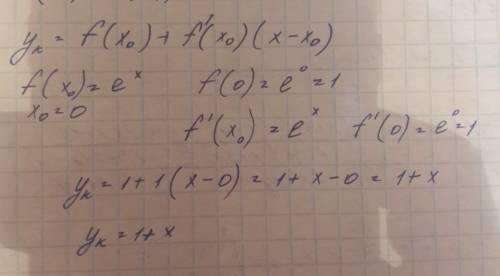 yₖ = f(x₀) + f'(x₀)(x-x₀)
f(x₀) = eˣ f(0) = e⁰ = 1
x₀ = 0
f'(x₀) = eˣ f'(0) = e⁰ = 1
yₖ = 1 + 1(x-0) = 1 + x - 0 = 1 + x
yₖ = 1 + x